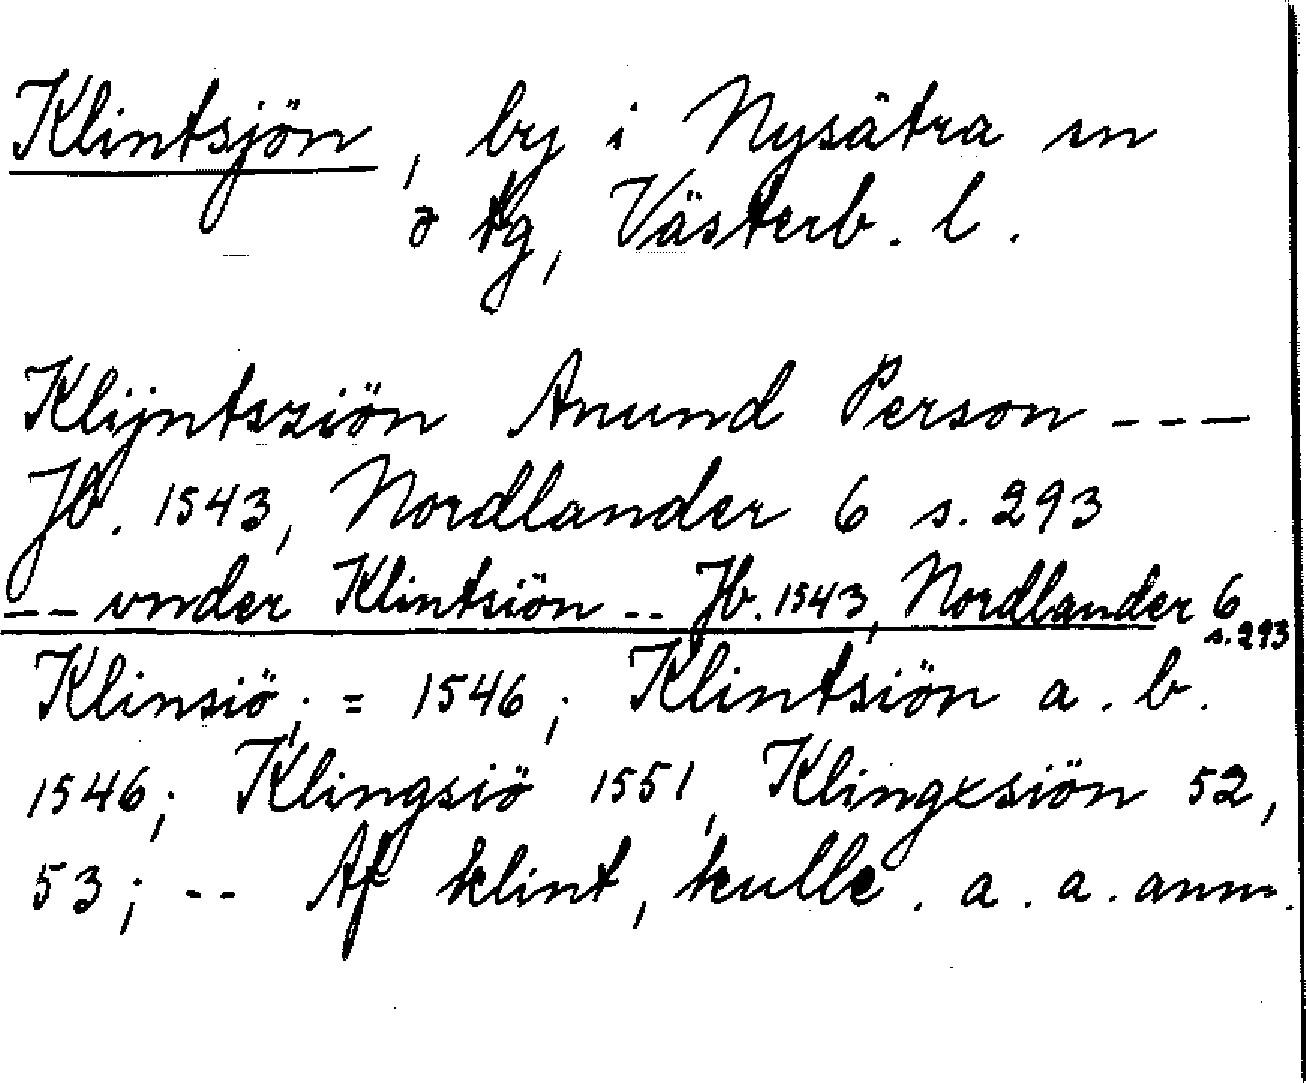 Klintsjön, by i Nysätra sn
o tg, Västerb. l.
Klijntsziön Anund Person ---
Jb. 1543, Nordlander 6 s. 293
-- vnder Klintsiön -- Jb. 1543, Nordlander 6 s. 293
Klinsiö; = 1546; Klintsiön a. b.
1546; Klingsiö 1551, Klingxsiön 52,
53; -- Af klint, kulle. a. a. anm.